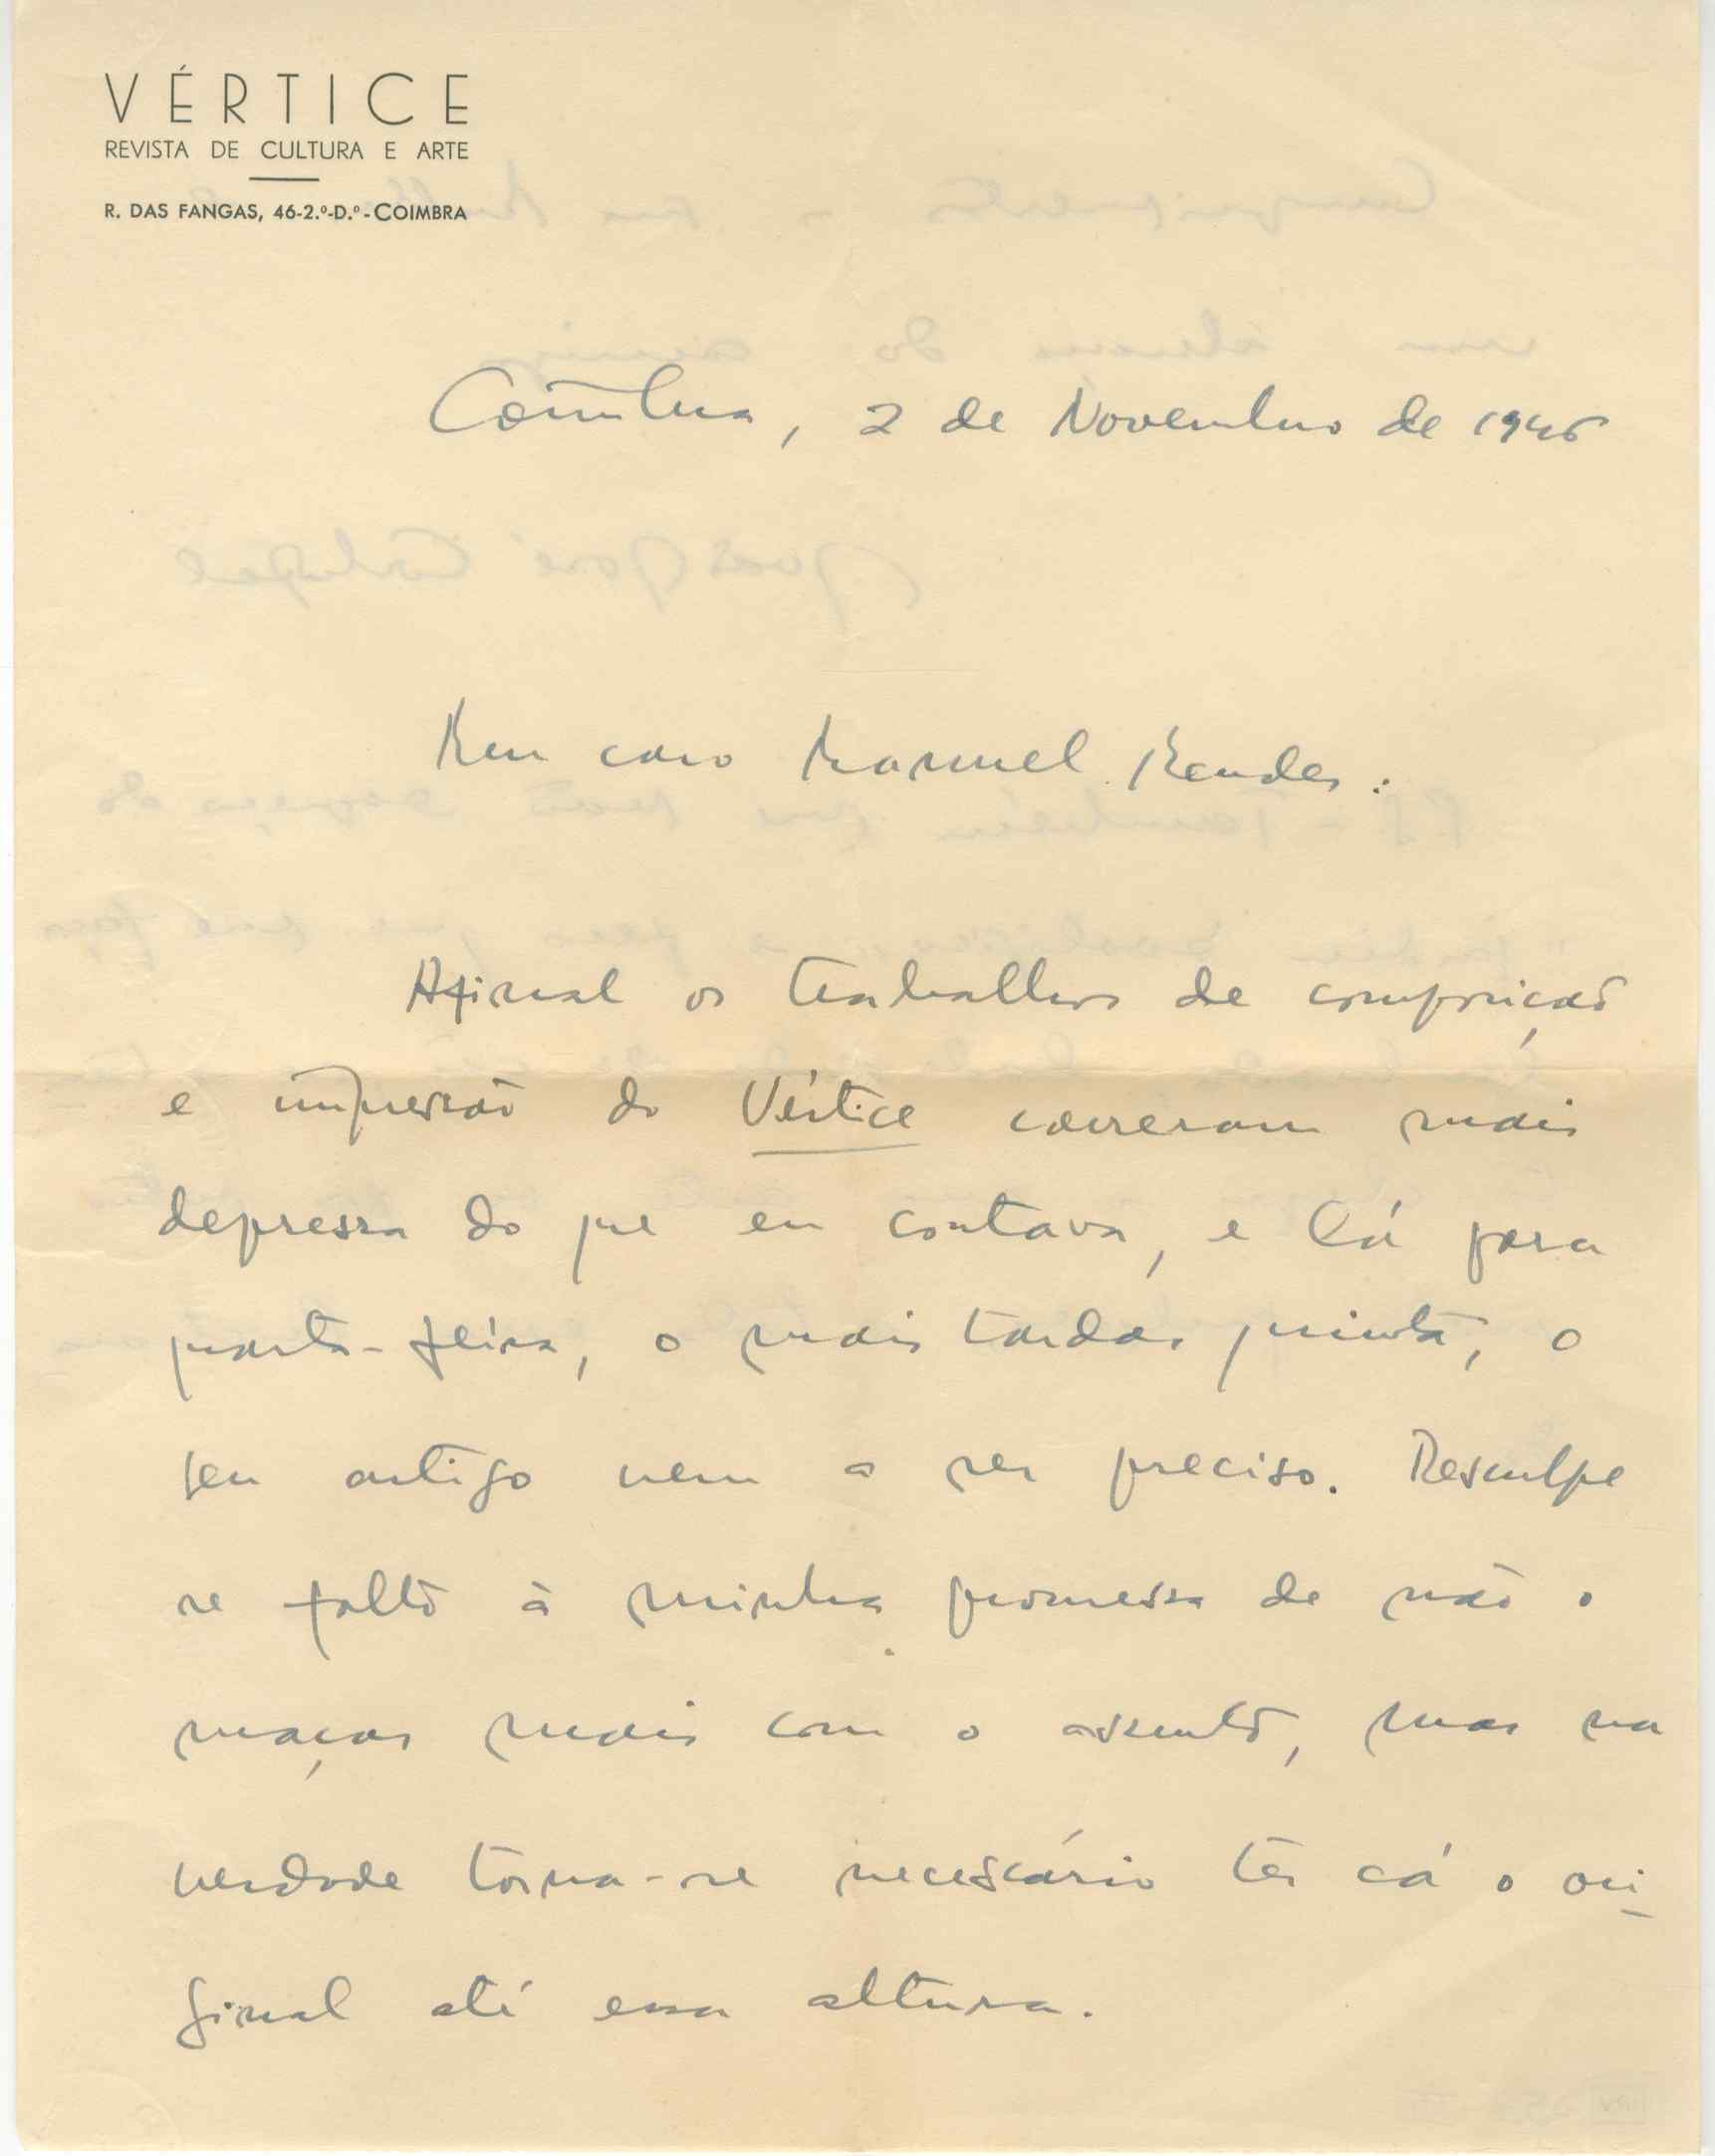 VÉRTICE
REVISTA DE CULTURA E ARTE
R. DAS FANGAS, 46-2.º-D.º - COIMBRA
Coimbra, 2 de Novembro de 1946
Meu caro Manuel Mendes:
Afinal os trabalhos de composição
e impressão do Vértice correram mais
depressa do que eu contava, e lá para
quarta-feira, o mais tardar quinta, o
seu artigo vem a ser preciso. Desculpe
se falto à minha promessa de não o
maçar mais com o assunto, mas na
verdade torna-se necessário ter cá o ori-
ginal até essa altura.